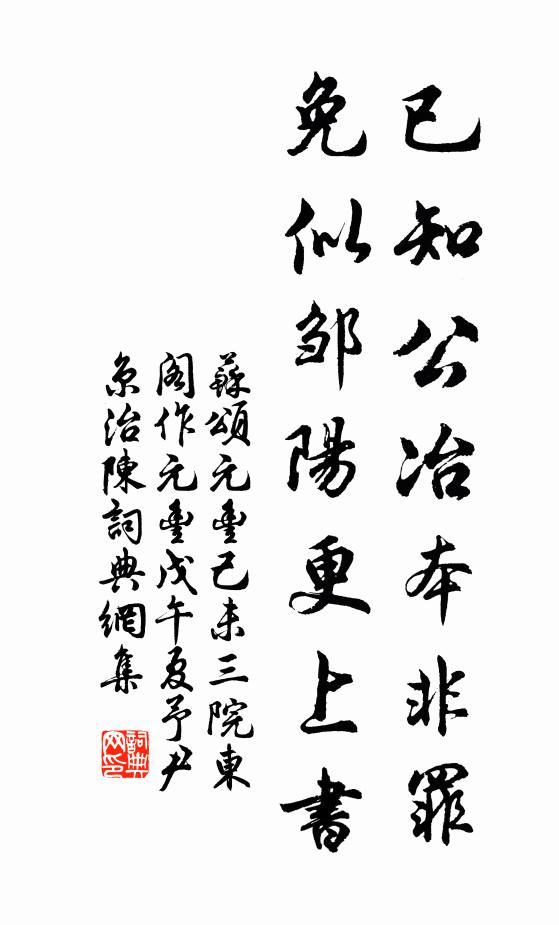 已知公冶本非罪
免似邹陽更上書
蘇頌元豐己未三院東
閣作元豐戊午夏予尹
京治陳詞典網集
詞典
网印